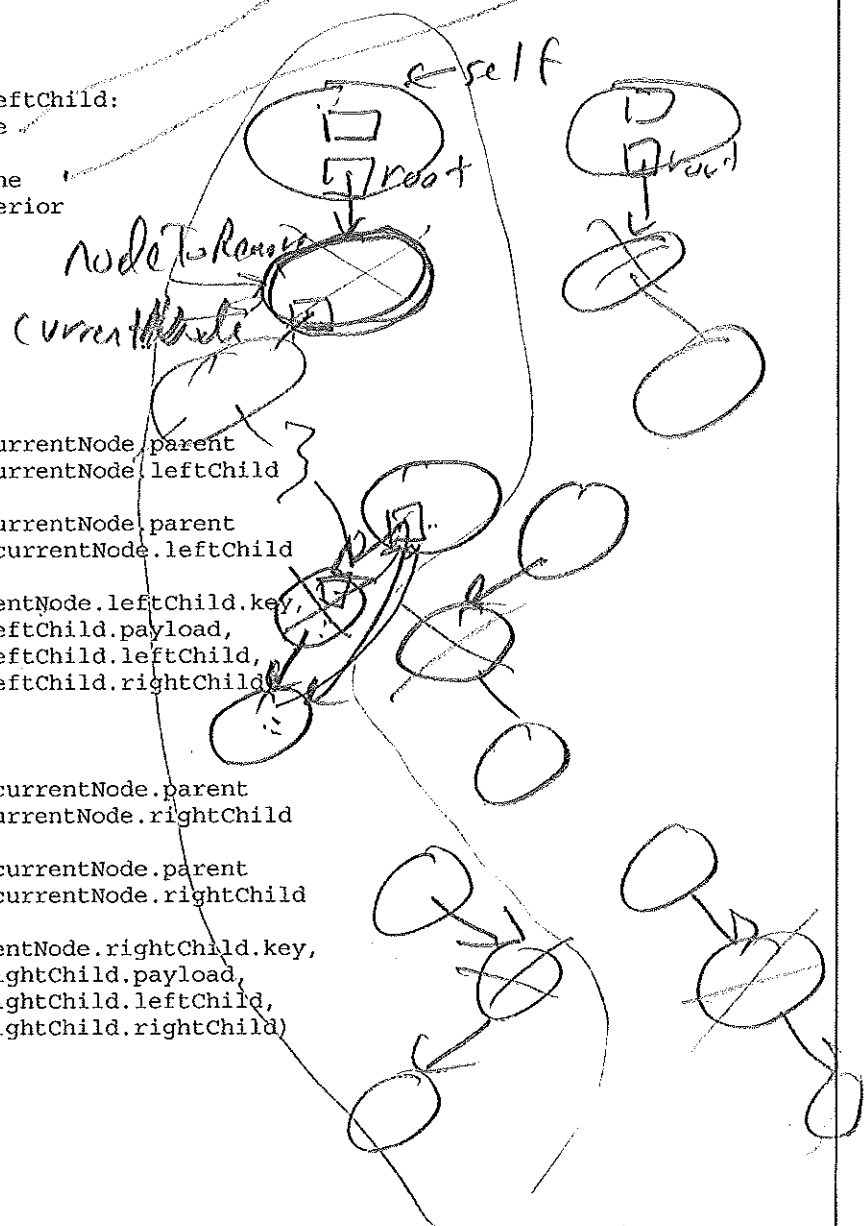 eftChild:
e
ne
erior
self
root
root
nodeToRemove
currentNode
urrentNode.parent
urrentNode.leftChild
urrentNode.parent
currentNode.leftChild
entNode.leftChild.key,
eftChild.payload,
eftChild.leftChild,
eftChild.rightChild
currentNode.parent
urrentNode.rightChild
currentNode.parent
currentNode.rightChild
entNode.rightChild.key,
ightChild.payload,
ightChild.leftChild,
ightChild.rightChild)